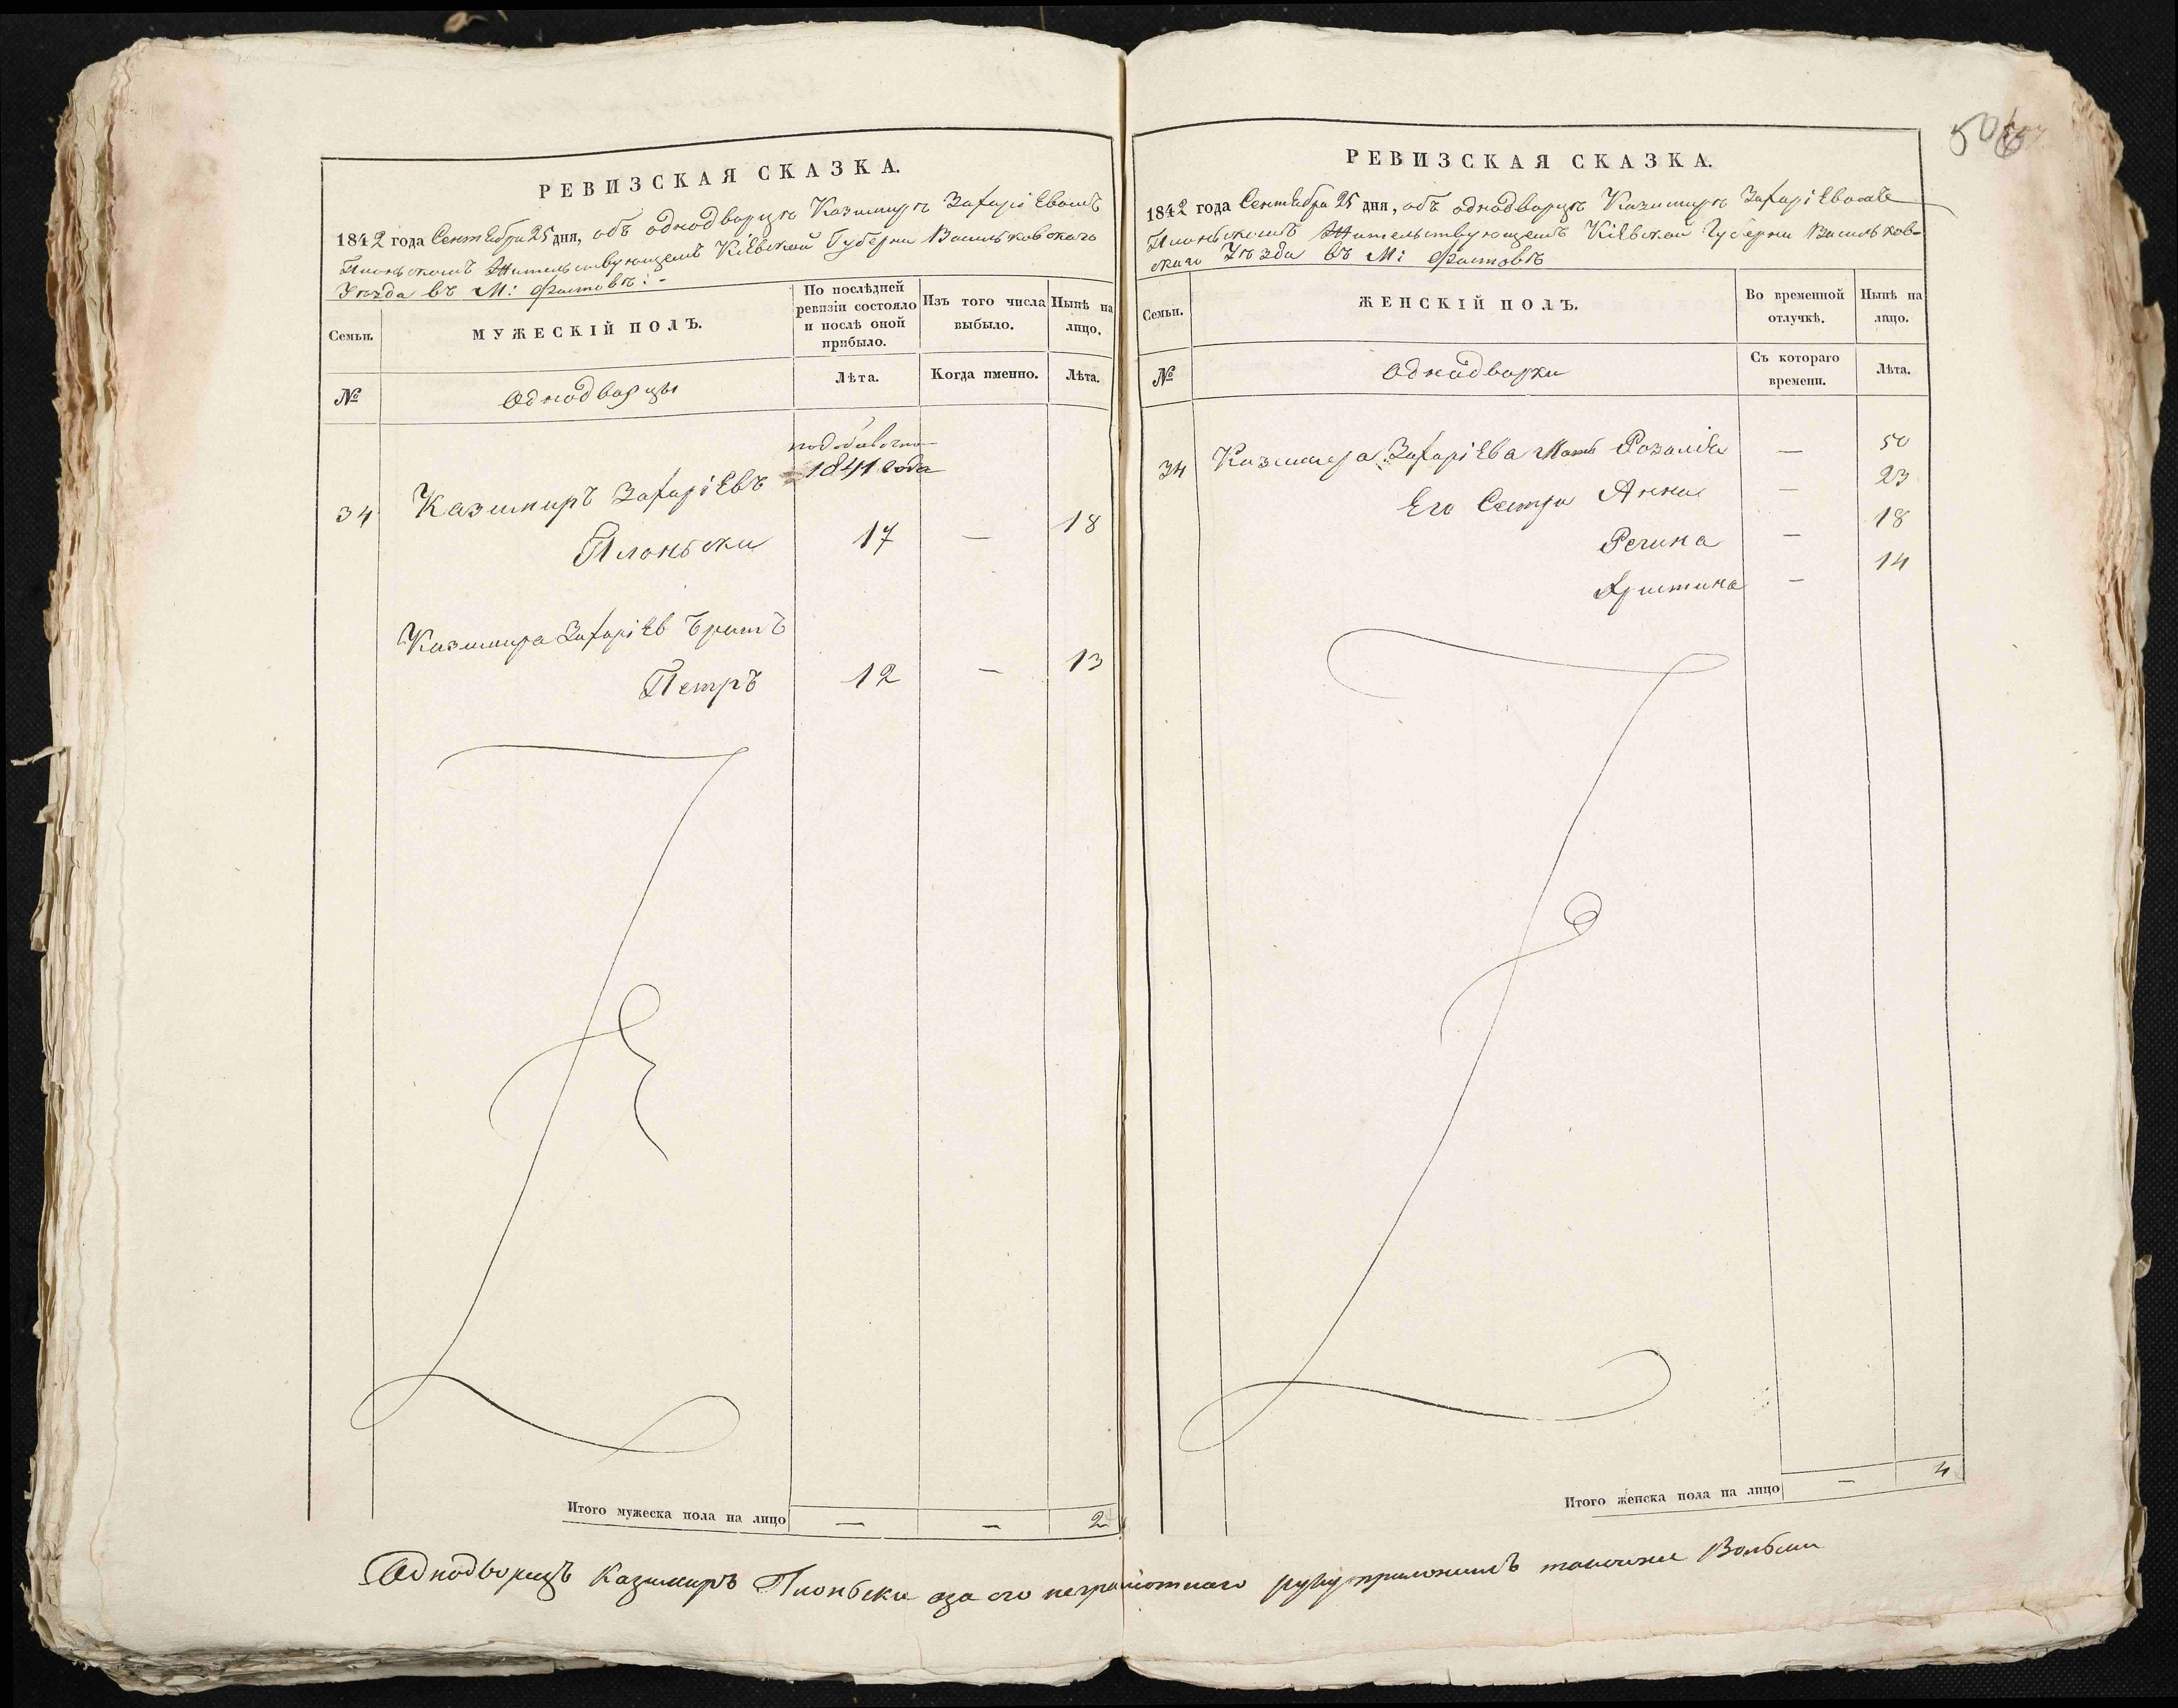 РЕВИЗСКАЯ СКАЗКА.
1842 года Сентября 25 дня, объ однодворцѣ Казимирѣ Захаріевомъ
Плоньскомъ Жительствующемъ Кіевской Губерни Васильковского
Уѣзда въ М: Фастовѣ:-
Семьи.
МУЖЕСКІЙ ПОЛЪ.
По послѣдней
ревизіи состояло
и послѣ оной
прибыло.
Изъ того числа
выбыло.
Нынѣ на
лицо.
№
Однодворцы
Лѣта.
Когда именно.
Лѣта.
1841 года
34 Казимиръ Захаріевъ
Плоньски 17 — 18
Казимира Захаріев братъ
Петръ 12 — 13
Итого мужеска пола на лицо — — 2
506
РЕВИЗСКАЯ СКАЗКА.
1842 года Сентября 25 дня, объ однодворцѣ Казимирѣ Захаріевомъ
Плоньскомъ Жительствующемъ Кіевской Губерни Васильков-
скаго Уѣзда въ М: Фастовѣ
Семьи.
ЖЕНСКІЙ ПОЛЪ.
Во временной
отлучкѣ.
Нынѣ на
лицо.
№
Однодворки
Съ котораго
времени.
Лѣта.
34 Казимера Захаріева Мать Розалія — 50
Его Сестра Анна — 23
Регина — 18
Христина — 14
Итого женска пола на лицо — 4
Однодворецъ Казимиръ Плоньски аза его неграмотнаго руку приложилъ